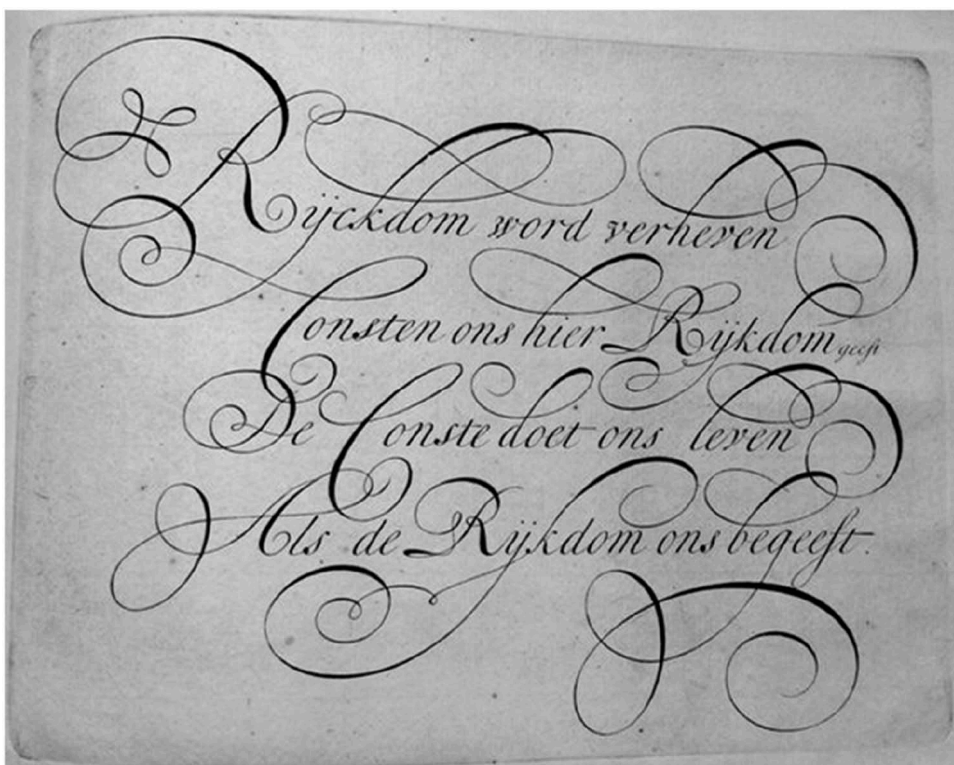 Rijckdom word verheven
Consten ons hier Rijkdom geeft
De Conste doet ons leven
Als de Rijkdom ons begeeft.